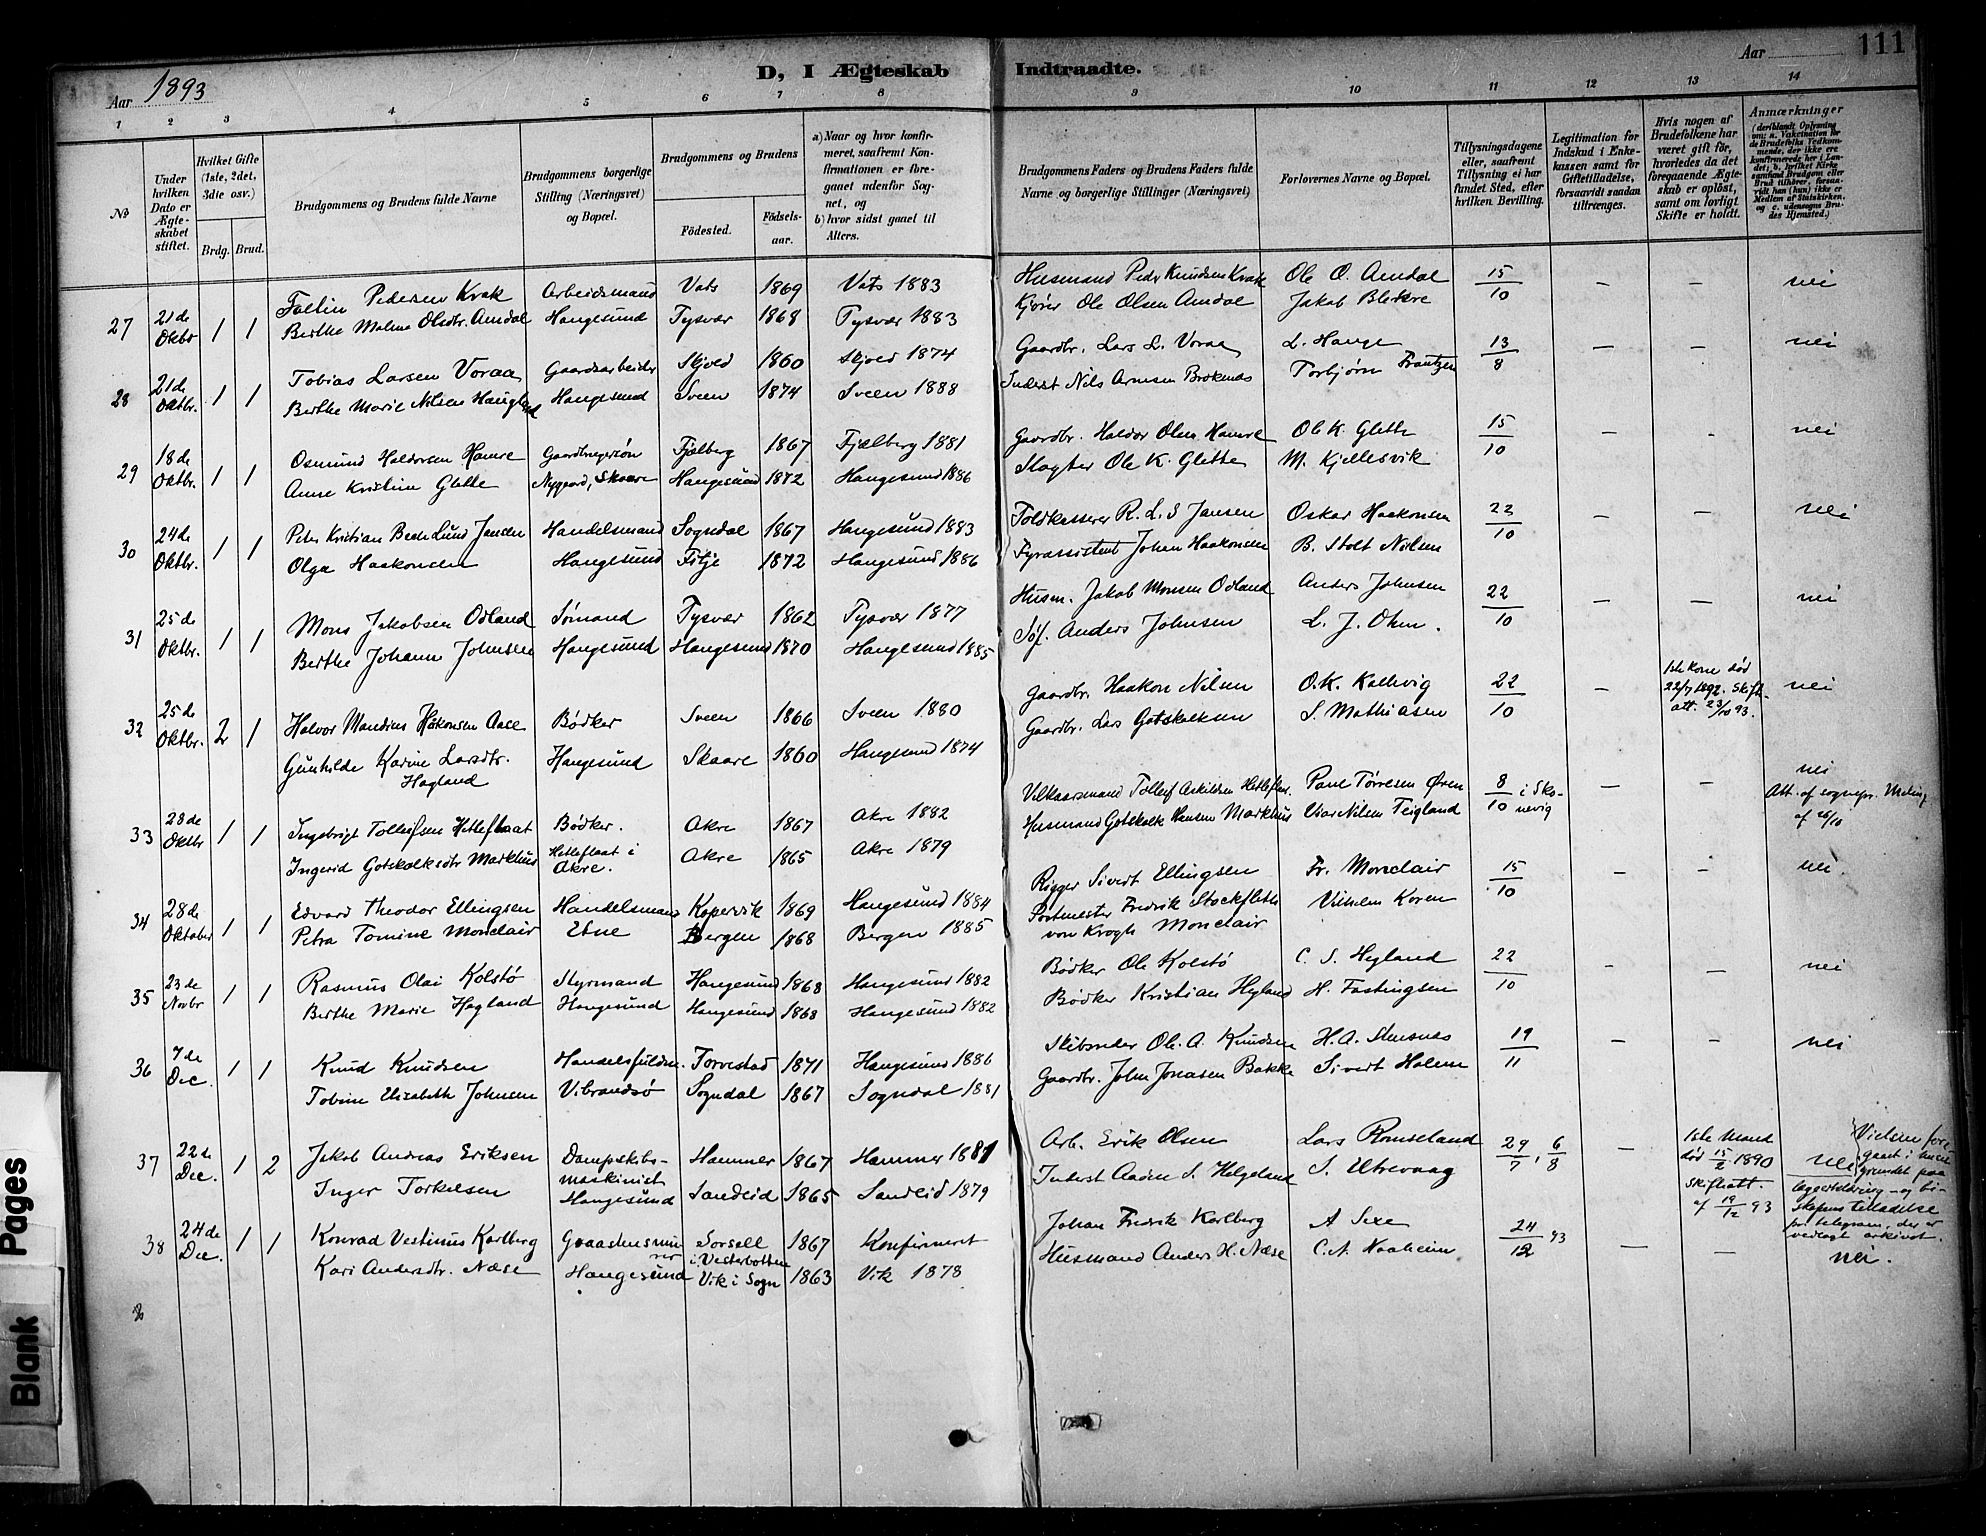 Aar 1893
D, I Ægteskab Indtraadte.
Aar 111
1 2 3 4 5 6 7 8 9 10 11 12 13 14
No
Under hvilken Dato er Ægteskabet stiftet.
Hvilket Gifte (1ste, 2det, 3die osv.)
Brdg. Brud.
Brudgommens og Brudens fulde Navne
Brudgommens borgerlige Stilling (Næringsvei) og Bopæl.
Brudgommens og Brudens
Fødested. Fødsels-aar.
a) Naar og hvor konfirmeret, saafremt Konfirmationen er foregaaet udenfor Sognet, og
b) hvor sidst gaaet til Alters.
Brudgommens Faders og Brudens Faders fulde Navne og borgerlige Stillinger (Næringsvei)
Forlovernes Navne og Bopæl.
Tillysningsdagene eller, saafremt Tillysning ei har fundet Sted, efter hvilken Bevilling.
Legitimation for Indskud i Enkekassen samt for Giftetilladelse, forsaavidt saadan tiltrænges.
Hvis nogen af Brudefolkene har været gift før, hvorledes da det foregaaende Ægteskab er opløst, samt om lovligt Skifte er holdt.
Anmærkninger
27 21de Oktbr 1 1 Pedersen Krak Arbeidsmand Vats 1869 Vats 1883 Husmand Peder Knudsen Krak Ole O. Amdal 15/10 – – nei
Berthe Malena Olsdtr. Amdal Haugesund Tysvær 1868 Tysvær 1883 Kjører Ole Olsen Amdal Jakob
28 21de Oktbr. 1 1 Tobias Larsen Voraa Gaardsarbeider Skjold 1860 Skjold 1874 Gaardbr. Lars L. Voraa L. Hauge 13/8 – – nei
Berthe Marie Nilsen Haugland Haugesund Sveen 1874 Sveen 1888 Inderst Nils Torbjørn Frantzen
29 18de Oktbr. 1 1 Osmund Haldorsen Hamre Gaardbrugersøn Fjælberg 1867 Fjælberg 1881 Gaardbr. Haldor Olsen Hamre Ole K. Glette 15/10 – - nei
Anne Kristine Glette Nygaard, Skaare Haugesund 1872 Haugesund 1886 Slagter Ole K. Glette M. Kjellesvik
30 24de Oktbr. 1 1 Peter Kristian Lund Jansen Handelsmand Sogndal 1867 Haugesund 1883 Toldkasserer R. L. S Jansen Oskar Haakonsen 22/10 – – nei
Olga Haakonsen Haugesund Fitje 1872 Haugesund 1886 Fyrassistent Johan Haakonsen B. Stolt Nilsen
31 25de Oktbr. 1 1 Mons Jakobsen Odland Sømand Tysvær 1862 Tysvær 1877 Husm. Jakob Monsen Odland Anders Johnsen 22/10 – – nei
Berthe Johanne Johnsen Haugesund Haugesund 1870 Haugesund 1885 Søf. Anders Johnsen L. J. Ohm.
32 25de Oktbr. 2 1 Halvor Mandius Haakonsen Aase Bødker Sveen 1866 Sveen 1880 Gaardbr. Haakon Nilsen O. K. Kallevig 22/10 – 1ste Kone død 22/7 1892. Skift. att. 23/10 93. nei
Gunhilde Karine Larsdtr. Hagland Haugesund Skaare 1860 Haugesund 1874 Gaardbr. Lars Gotskalksen S. Mathiasen
33 28de Oktbr 1 1 Ingebrigt Tolleifsen Hetleflaat Bødker. Akre 1867 Akre 1882 Vilkaarsmand Tolleif Askildsen Hetleflaat Paul Tørresen Øren 8/10 i Skonevig – – nei
Att. af sognepr. Meling af 26/10
Ingerid Gotskalksdtr Markhus Hetleflaat i Akre. Akre 1865 Akre 1879 Husmand Gotskalk Hansen Markhus Nilsen Teigland
34 28de Oktober 1 1 Edvard Theodor Ellingsen Handelsmand Kopervik 1869 Haugesund 1884 Rigger Sivert Ellingsen Fr. Monclair 15/10 – - nei.
Petra Tomine Monclair Etne Bergen 1868 Bergen 1885 Postmester Fredrik Stockfleth von Krogh Monclair Vilhelm Koren
35 23de Novbr 1 1 Rasmus Olai Kolstø Styrmand Haugesund 1868 Haugesund 1882 Bødker Ole Kolstø C. S. Hegland 22/10 – – nei
Berthe Marie Hagland Haugesund Haugesund 1868 Haugesund 1882 Bødker Kristian Hegland H. Fastingsen
36 7de Dec. 1 1 Knud Knudsen Handelsfuldm. Torvestad 1871 Haugesund 1886 Skibsreder Ole A. Knudsen H. A. Stensnæs 19/11 – – nei
Tobine Elizabeth Johnsen Vibrandsø Sogndal 1867 Sogndal 1881 Gaardbr. John Jonasen Bakke Sivert Holem
37 22de Dec. 1 2 Jakob Andreas Eriksen Dampskibsmaskinist Hammer 1867 Hammer 1881 Arb. Erik Olsen Lars Romseland 29/7, 6/8 – 1ste Mand død 15/2 1890 Skifteatt. af 19/12 93 nei
Vielsen foregaaet i huset grundet paa lægeerklæring og biskopens tilladelse pr telegram, der er vedlagt arkivet.
Inger Torkelsen Haugesund Sandeid 1865 Sandeid 1879 Inderst Aaden S. Helgeland S. Utvevaag
38 24de Dec. 1 1 Konrad Vestinus Karlberg Graastensminerer Sorsell i Vesterbotten 1867 Konfirmeret Johan Fredrik Karlberg A Sexe 24/12 93 – – nei.
Kari Andersdtr. Næse Haugesund Vik i Sogn 1863 Vik 1878 Husmand Anders H. Næse C. A. Naaheim
Blank Pages